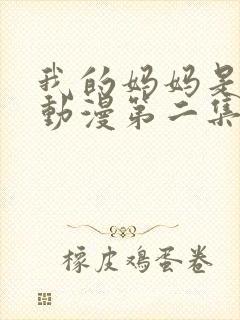 我的妈妈是
動漫第二集
橡皮鸡蛋卷